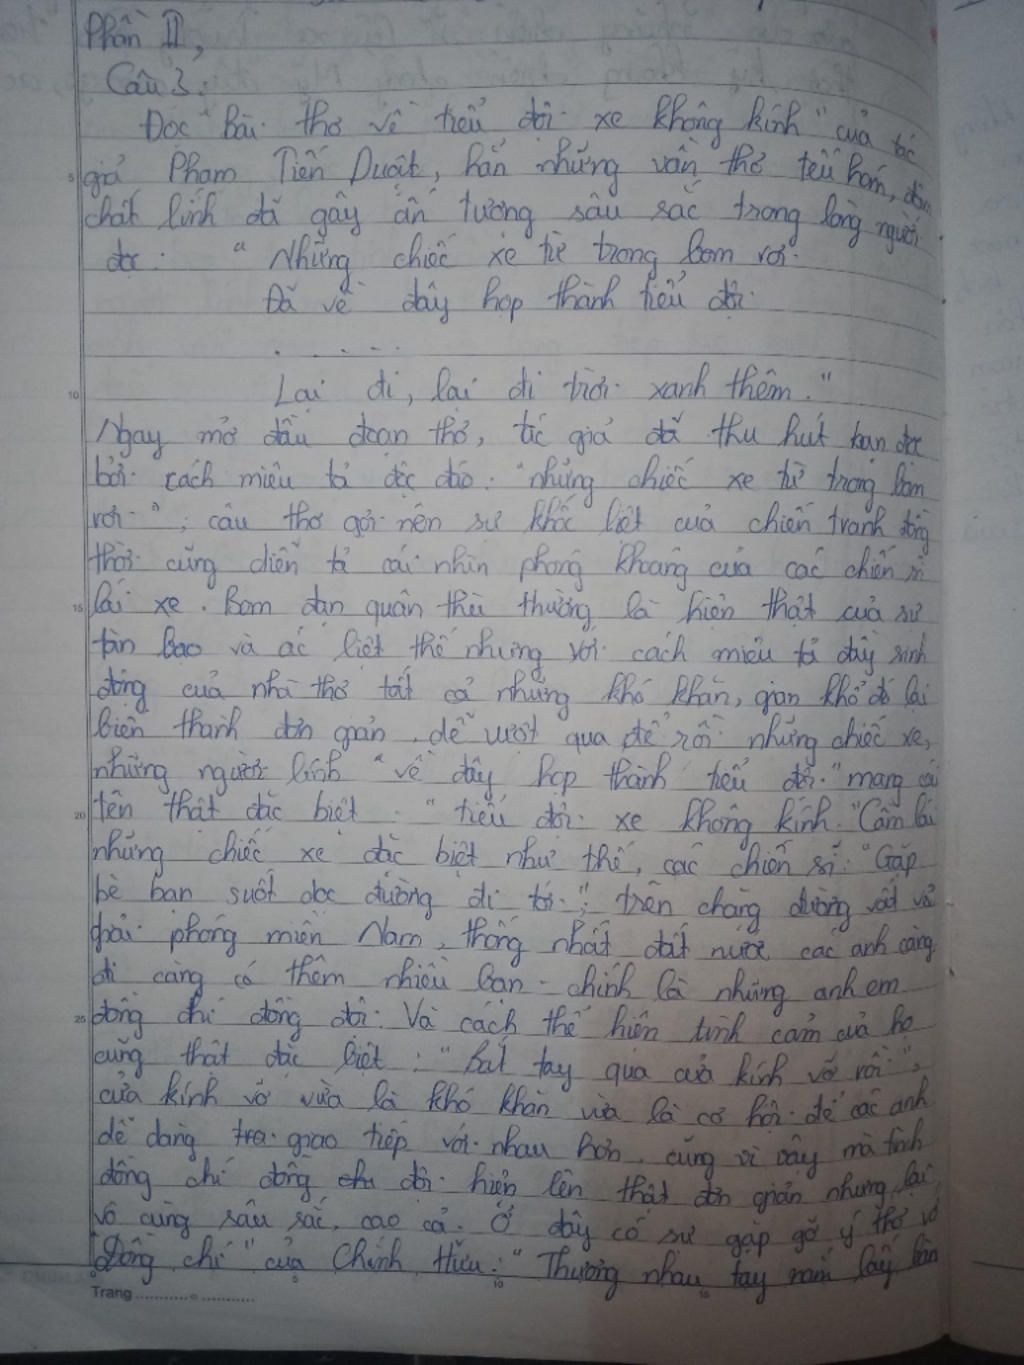 Phần II,
Câu 3:
Đọc "Bài thơ về tiểu đội xe không kính" của tác
giả Phạm Tiến Duật, hẳn những vần thơ tếu hóm, đậm
chất lính đã gây ấn tượng sâu sắc trong lòng người
đọc: "Những chiếc xe từ trong bom rơi
Đã về đây họp thành tiểu đội
. . . . .
Lại đi, lại đi trời xanh thêm."
Ngay mở đầu đoạn thơ, tác giả đã thu hút bạn đọc
bởi cách miêu tả độc đáo: "những chiếc xe từ trong bom
rơi"; câu thơ gợi nên sự khốc liệt của chiến tranh đồng
thời cũng diễn tả cái nhìn phóng khoáng của các chiến sĩ
lái xe. Bom đạn quân thù thường là hiện thật của sự
tàn bạo và ác liệt thế nhưng với cách miêu tả đầy sinh
động của nhà thơ tất cả những khó khăn, gian khổ đó lại
biến thành đơn giản, dễ vượt qua để rồi những chiếc xe,
những người lính "về đây họp thành tiểu đội" mang cái
tên thật đặc biệt: "tiểu đội xe không kính." Cầm lái
những chiếc xe đặc biệt như thế, các chiến sĩ: "Gặp
bè bạn suốt dọc đường đi tới"; trên chặng đường vất vả
giải phóng miền Nam, thống nhất đất nước các anh càng
đi càng có thêm nhiều bạn - chính là những anh em
đồng chí đồng đội. Và cách thể hiện tình cảm của họ
cũng thật đặc biệt: "bắt tay qua cửa kính vỡ rồi",
cửa kính vỡ vừa là khó khăn vừa là cơ hội để các anh
dễ dàng trao giao tiếp với nhau hơn, cũng vì vậy mà tình
đồng chí đồng đội hiện lên thật đơn giản nhưng lại
vô cùng sâu sắc, cao cả. Ở đây có sự gặp gỡ ý thơ với
"Đồng chí" của Chính Hữu: "Thương nhau tay nắm lấy bàn
Trang